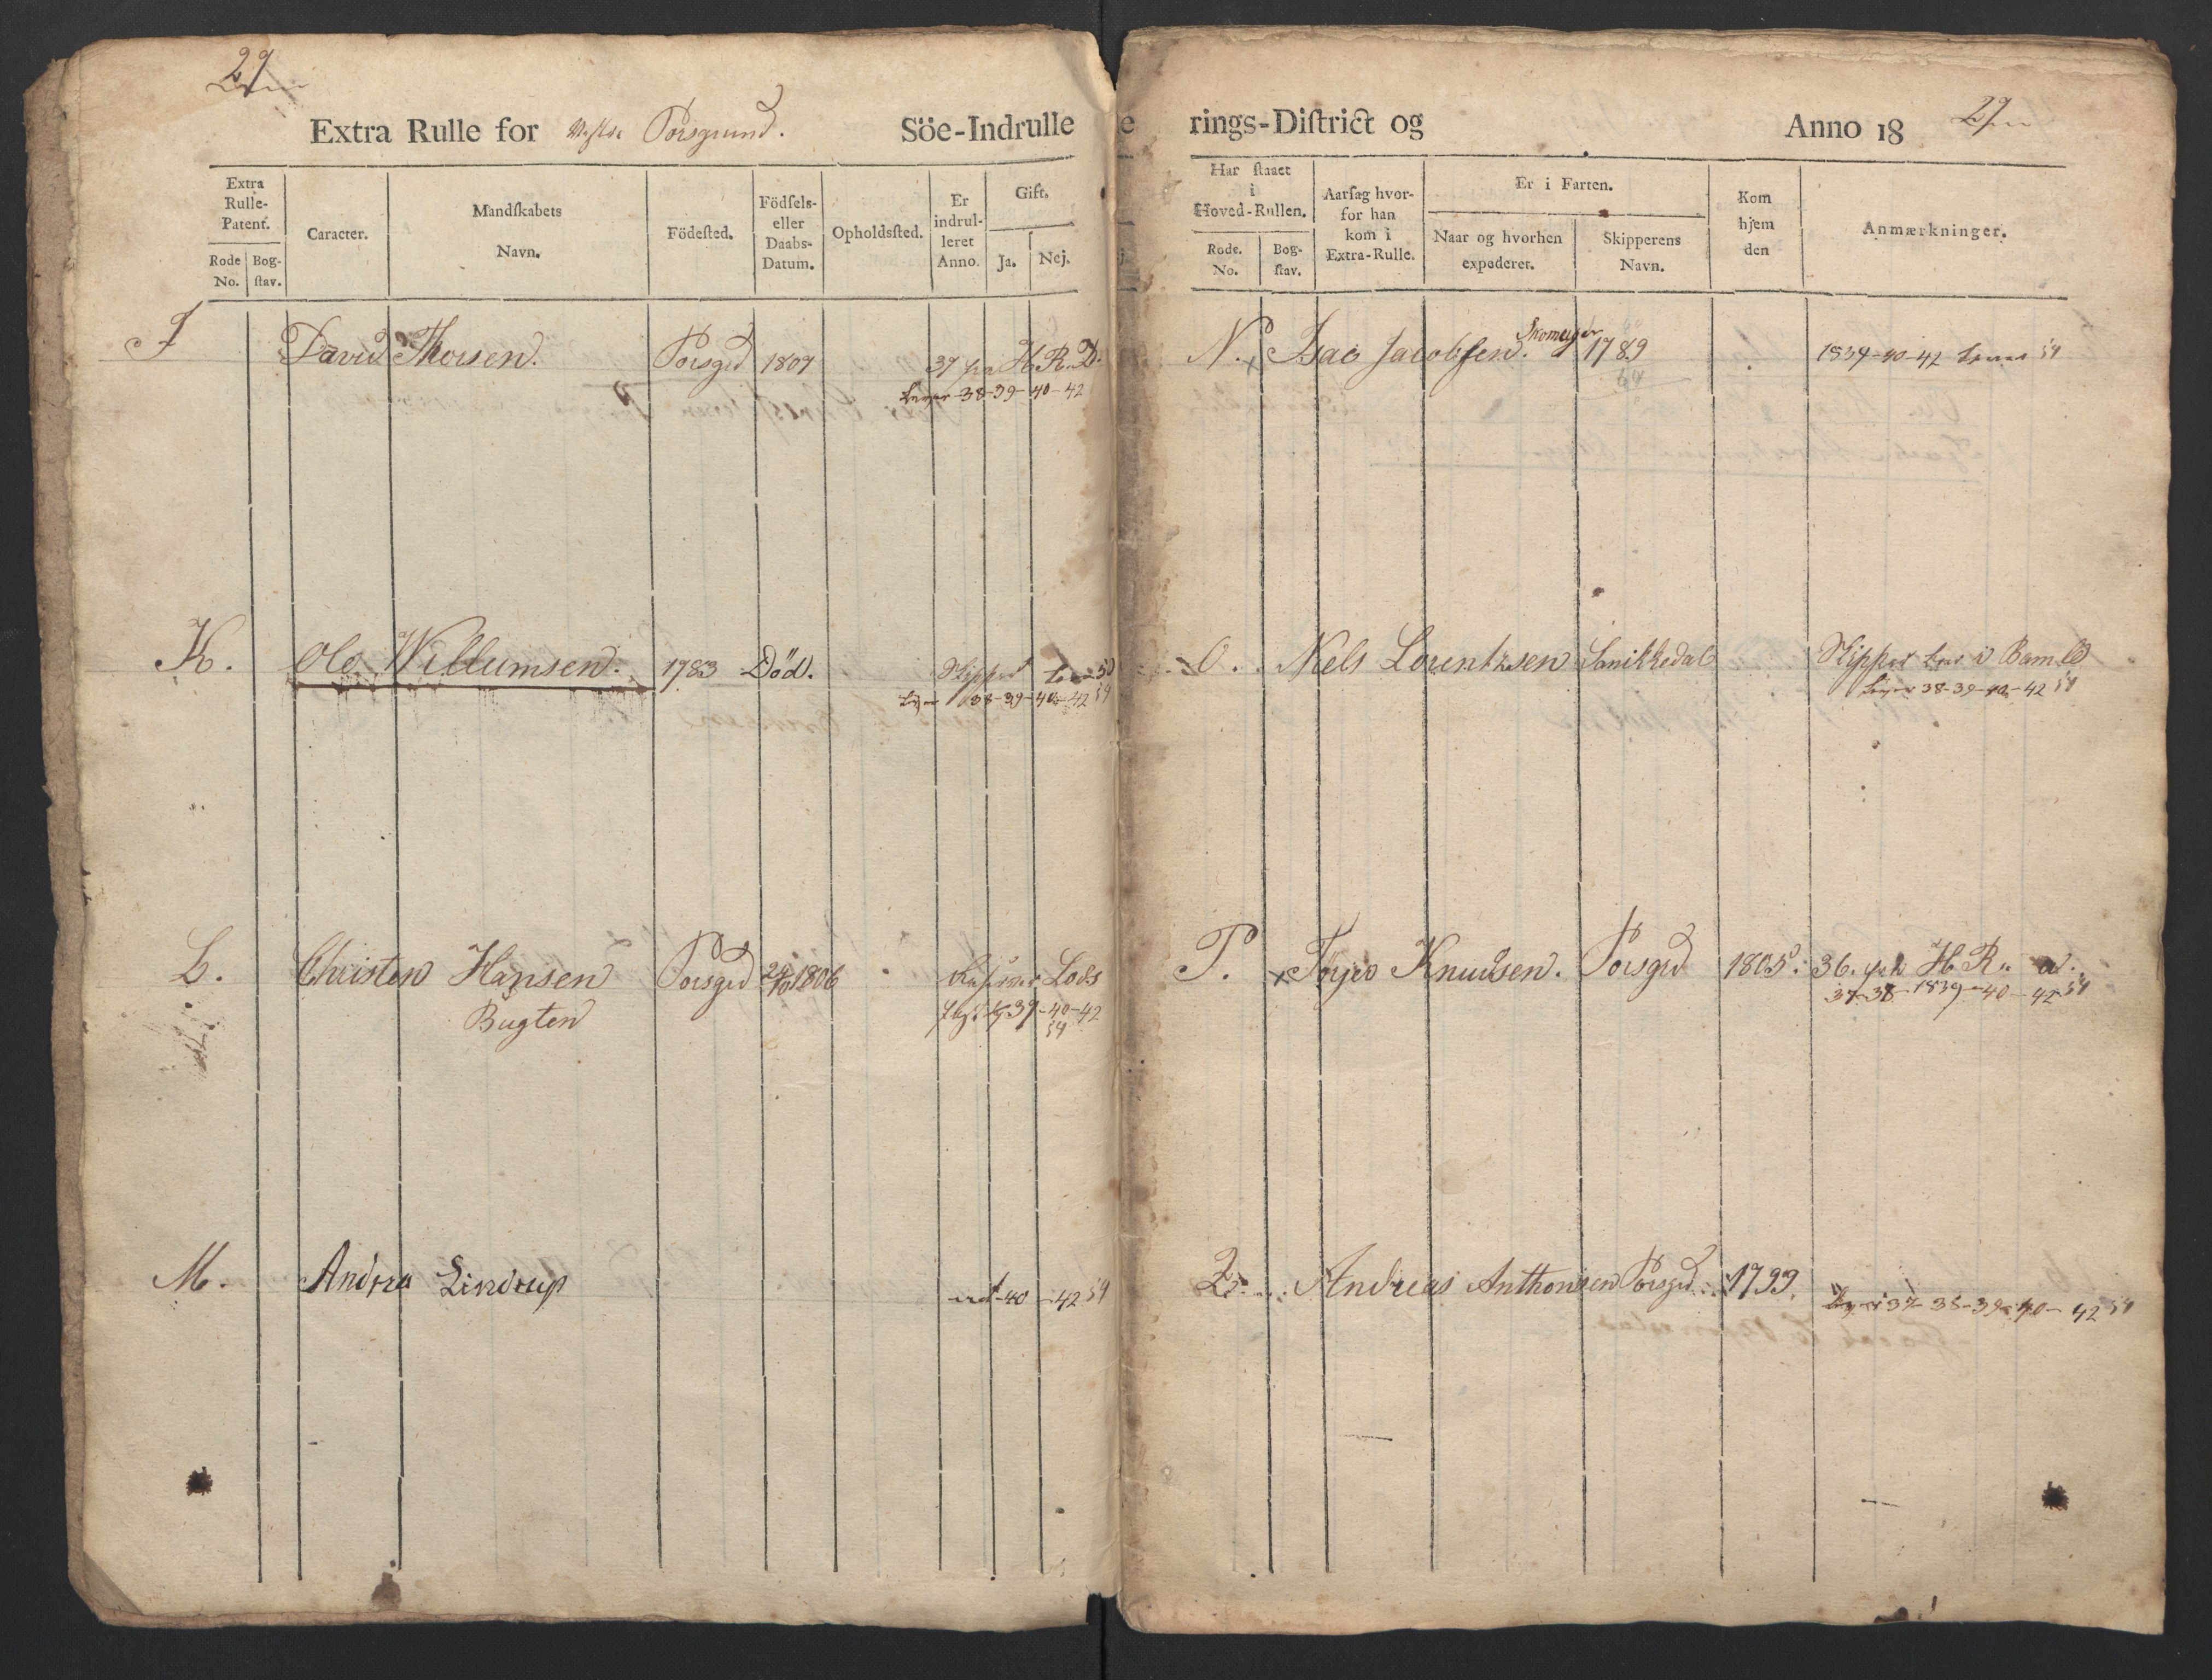 29
Extra Rulle for Porsgrund. Söe-Indrulle
Extra Rulle-Patent.
Rode No.
Bog-stav.
Caracter.
Mandſkabets Navn.
Födeſted.
Födſels- eller Daabs-Datum.
Opholdsſted.
Er indrul-leret Anno.
Gift.
Ja.
Nej.
I David Thorsen. Porsgrd 1807 37 fra H.R. D.
38-39-40-42
K. Ole Willumsen. 1783 Död. Skipper
38-39-40-42 59
L. Christen Hansen Porsgrd 1806 Lods
Bugten 39-40-42
59
M. Andrea Lindrup 40-42 59
e rings-Diſtrict og Anno 18 29
Har ſtaaet i Hoved-Rullen.
Rode. No.
Bog-ſtav.
Aarſag hvor-for han kom i Extra-Rulle.
Er i Farten.
Naar og hvorhen expederet.
Skipperens Navn.
Kom hjem den
Anmærkninger.
N. x Isac Jacobsen. 1789 1839-40-42 59
O. Niels Lorentzsen Sanikkedal Skipper i Bamle
38-39-40-42 59
P. x Terjes Knudsen. Porsgrd 1805. 36. H.R. a.
37-38-1839-40-42 59
Q. Andreas Anthonsen Porsgrd. 1799.
37-38-39-40-42 59